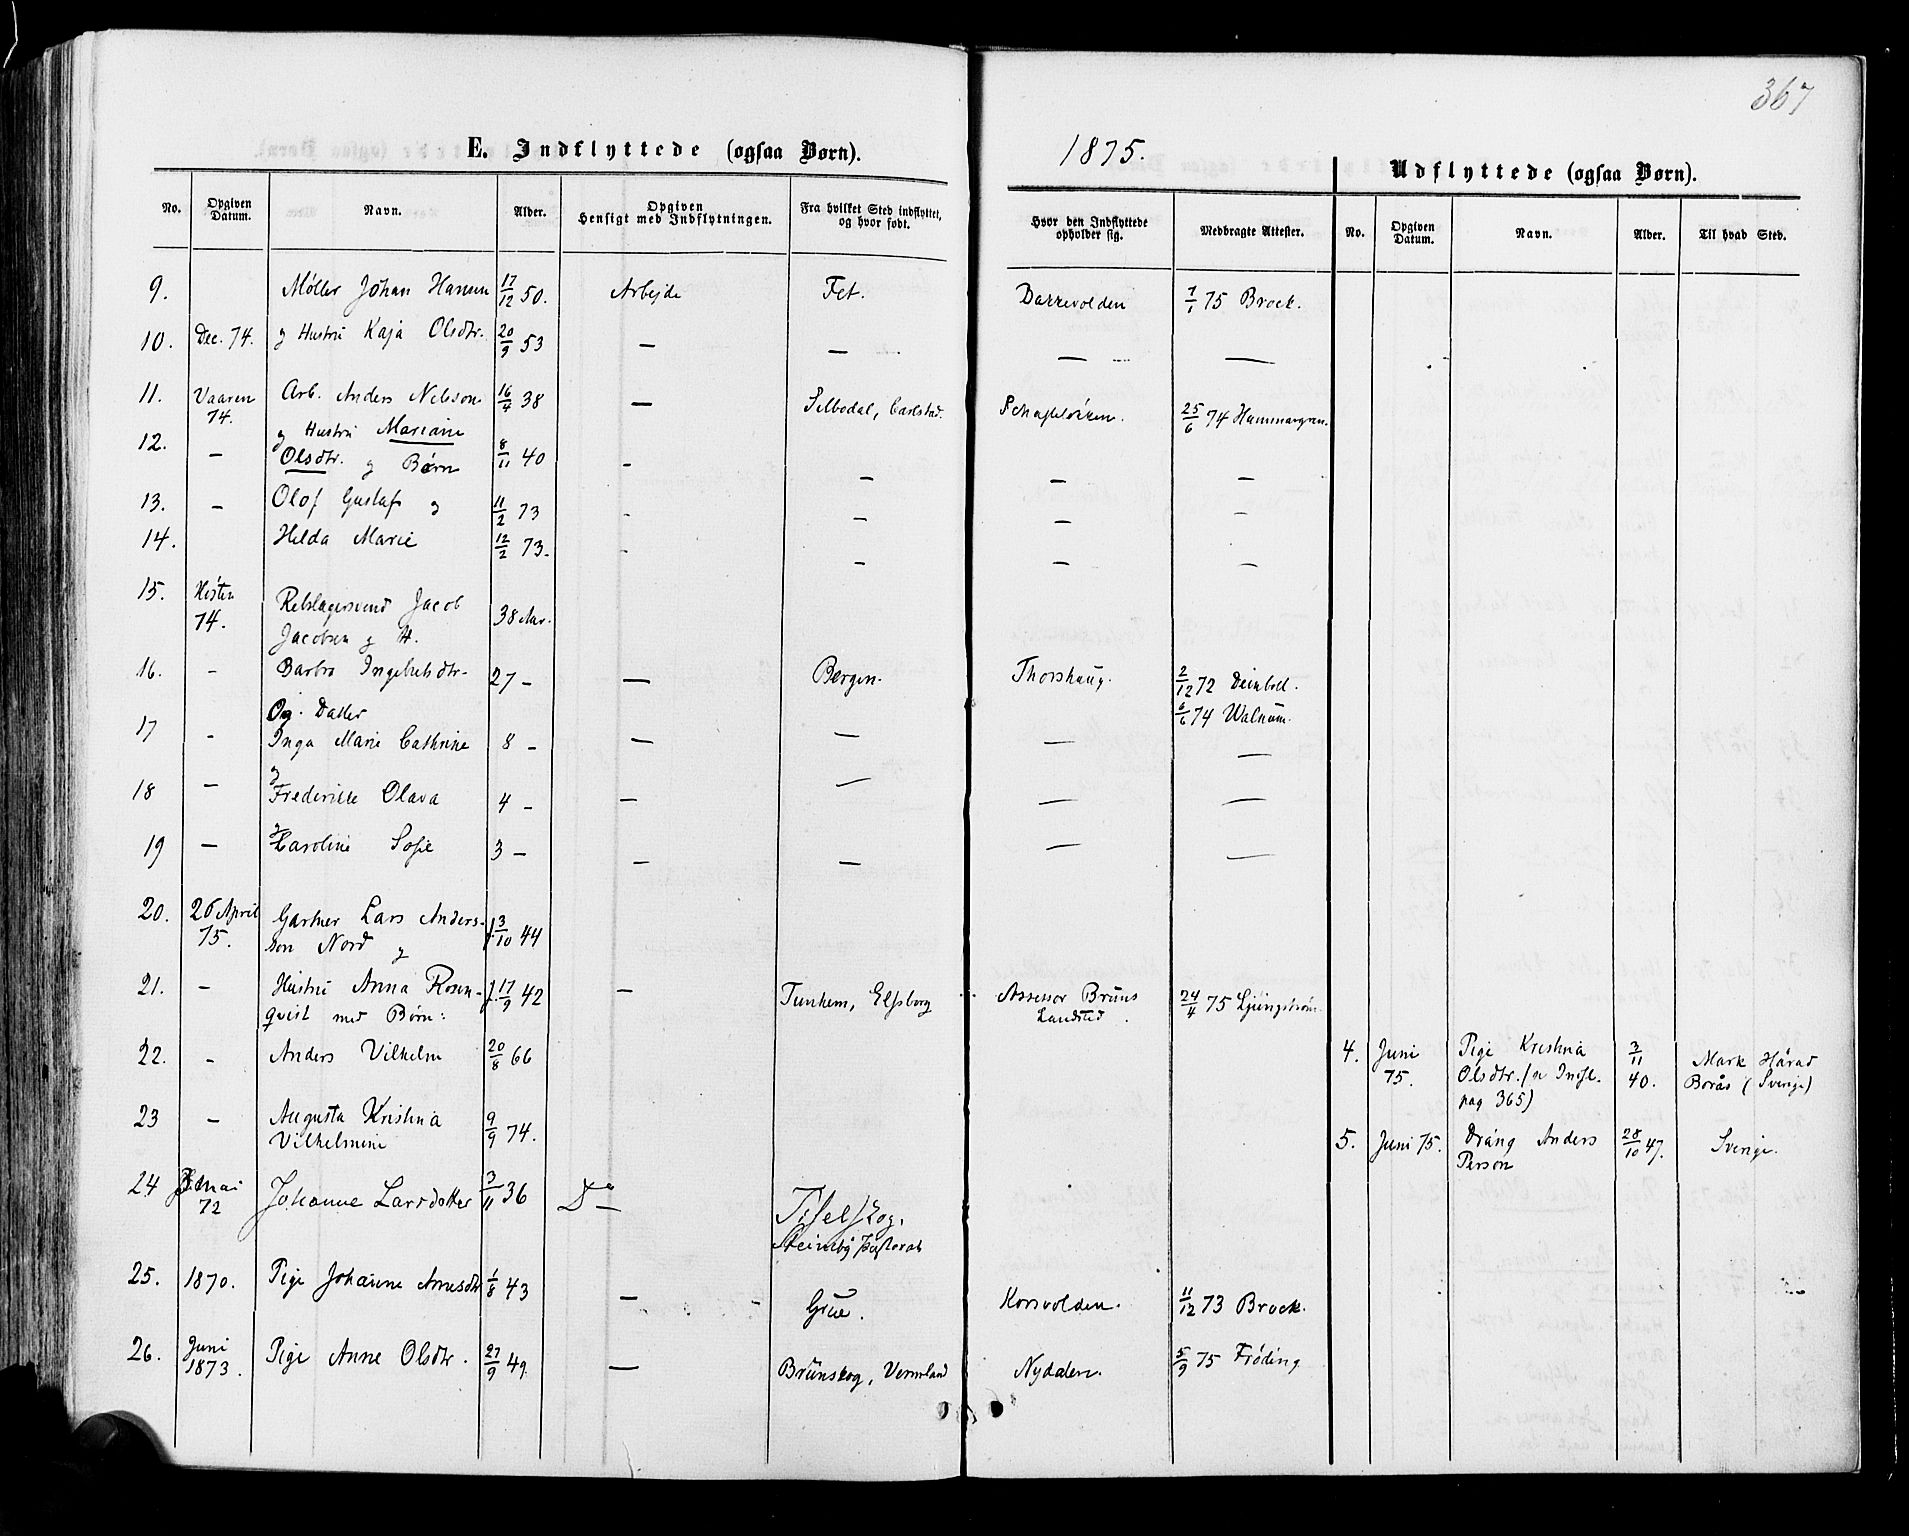 367
E. Indflyttede (ogsaa Børn).
1875.
Udflyttede (ogsaa Børn).
No.
Opgiven Datum.
Navn.
Alder.
Opgiven Hensigt med Indflytningen.
Fra hvilket Sted indflyttet, og hvor født.
Hvor den Indflyttede opholder sig.
Medbragte Attester.
No.
Opgiven Datum.
Navn.
Alder.
Til hvad Sted.
9. Møller Johan Hansen 17/12 50. Arbejde Fet. Barrevolden 7/1 75 Brock.
10. Dec. 74. og Hustru Kaja Olsdtr. 20/9 53 — — — —
11. Vaaren 74. Arb. Anders Nelsson 16/4 38 — Silbodal, Carlstad. 25/6 74 Hammargren.
12. — og Hustru Mariane
Olsdtr. og Børn 8/11 40 - — — —
13. — Olof Gustaf og 11/2 73 - — — —
14. Helda Marie 12/2 73. - — — —
15. Høsten 74. Rebslagersvend Jacob
Jacobsen og H. 38 Aar.
16. - Barbro Ingebretsdtr. 27 — — Bergen. Thorshaug. 2/12 72 Deinboll.
6/6 74 Walnum.
17 - Og. Døtter
Inga Marie Cathrine 8 — — — — —
18 — og Frederikke Olava 4 — — — — —
19 — og Caroline Sofie 3 — — — — —
20. 26 April 75. Gartner Lars Anders-
son Nord og f. 3/10 44
21. - Hustru Anna Rosen-
qvist med Børn: f. 17/9 42 — Tunhem, Elfsborg Assessor Bruns
Landsted. 24/4 75 Ljungstrøm.
22. - Anders Vilhelm 20/8 66
4. Juni 75. Pige Kristina
Olsdtr. (se Indfl.
pag 365) 3/11 40. Mark Härad
Borås (Sverige)
23 — Augusta Kristina
Vilhelmine 9/9 74.
5. Juni 75. Dräng Anders
Person 28/10 47. Sverige.
24 Mai 72 Johanne Larsdotter 3/11 36 Do Tisselskog,
Steineby Pastorat
25. 1870. Pige Johanne Arnesdtr 1/8 43 — Grue. Korsvolden. 11/12 73 Brock.
26. Juni 1873. Pige Anne Olsdtr. 27/9 49. — Brunskog, Vermland Nydalen. 5/9 75 Frøding